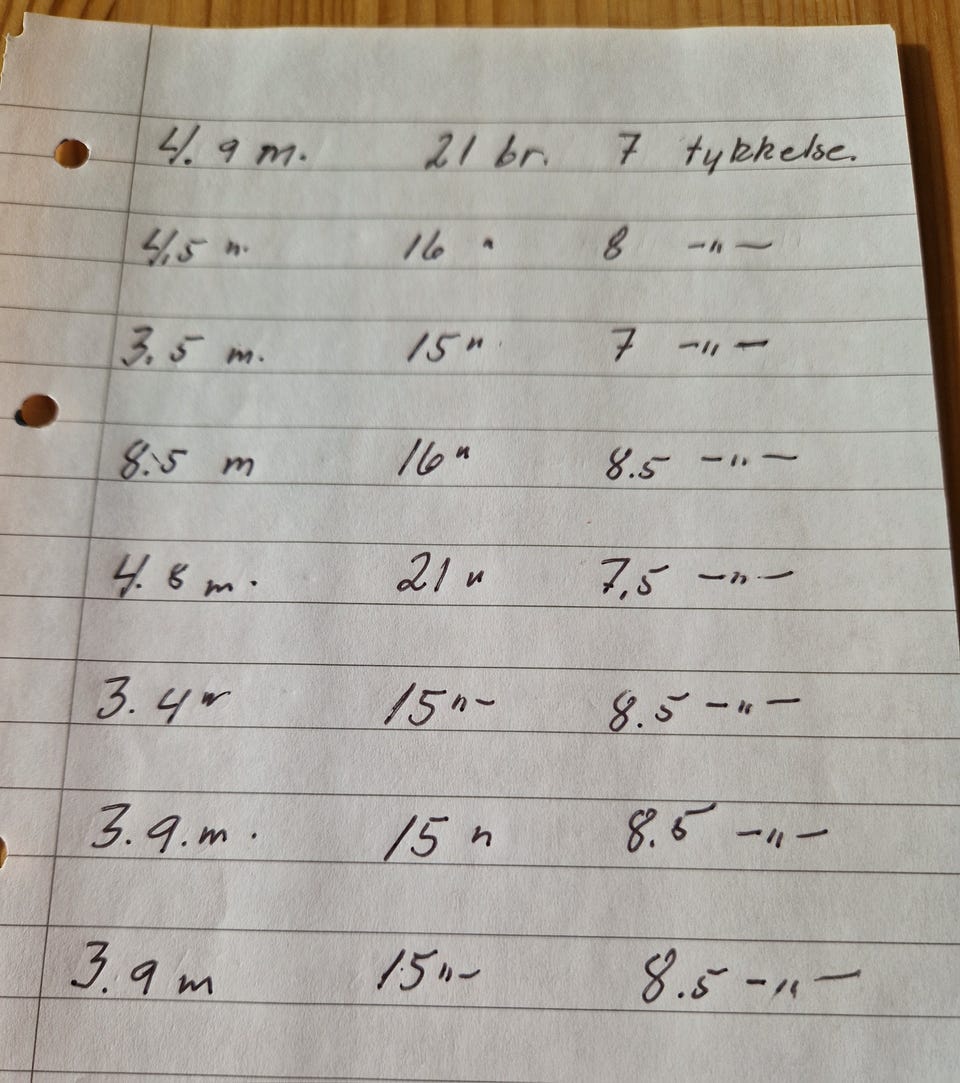 4.9 m. 21 br. 7 tykkelse.
4,5 m. 16 " 8 -"-
3.5 m. 15 " 7 -"-
8.5 m 16 " 8.5 -"-
4.8 m. 21 " 7,5 -"-
3.4 m 15 "- 8.5 -"-
3.9.m. 15 " 8.5 -"-
3.9 m 15 "- 8.5 -"-